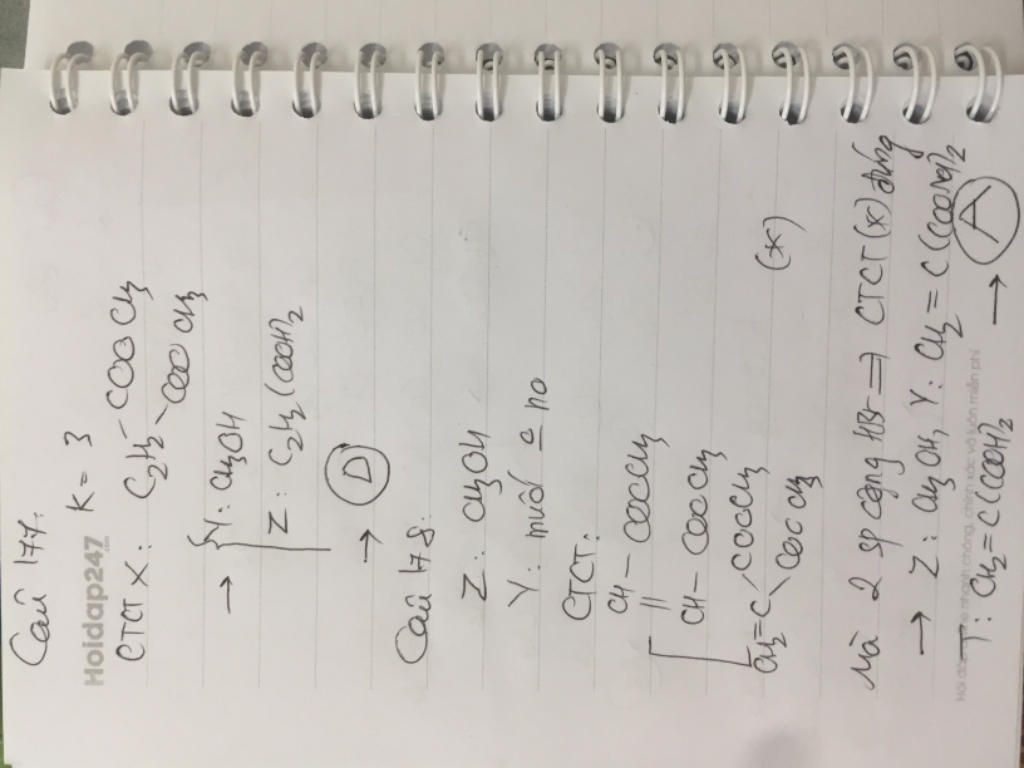 Câu 177:
K = 3
Hoidap247
.com
CTCT X: C2H2 - COOCH3
- COOCH3
→ { Y: CH3OH
Z: C2H2(COOH)2
→ D
Câu 178:
Z: CH3OH
Y: muối
CTCT:
CH - COOCH3
||
CH - COOCH3
CH2=C COOCH3
COOCH3 (*)
Mà 2 sp cộng HBr ⇒ CTCT (*) đúng
→ Z: CH3OH, Y: CH2 = C(COONa)2
T: CH2=C(COOH)2 → A
Hỏi đáp nhanh chóng, chính xác và luôn miễn phí